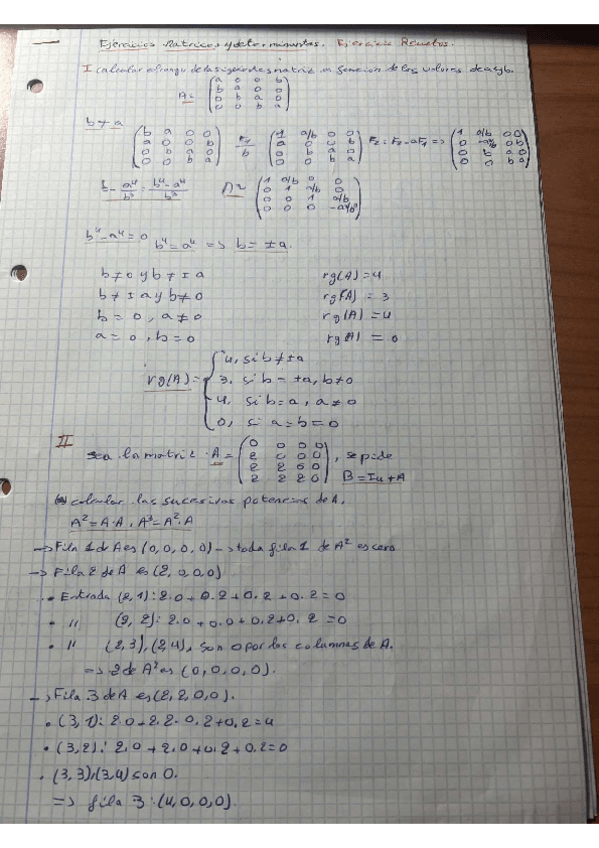 Ejercicios Matrices y determinantes. Ejercicio Resueltos.
I calcular el rango de la siguientes matriz en función de los valores de a y b.
A= (a 0 0 b
b a 0 0
0 b a 0
0 0 b a)
b≠a
(b a 0 0
a 0 0 b
0 b a 0
0 0 b a)
F1/b
(1 a/b 0 0
a 0 0 b
0 b a 0
0 0 b a)
F2 = F2-aF1 =>
(1 a/b 0 0
0 -a²/b 0 b
0 b a 0
0 0 b a)
b - a⁴/b³ = b⁴-a⁴/b³
(1 a/b 0 0
0 1 a/b 0
0 0 1 a/b
0 0 0
b⁴-a⁴=0 b⁴=a⁴ => b= ±a.
b≠0 y b≠±a rg(A)=4
b≠±a y b≠0 rg(A) = 3
b=0, a≠0 rg(A) =4
a=0, b=0 rg(A) = 0
rg(A)= { 4, si b≠±a
3, si b=±a, b≠0
4, si b=a, a≠0
0, si a=b=0
II
Sea la matriz A= (0 0 0 0
2 0 0 0
2 2 0 0
2 2 2 0), se pide
B=I4+A
calcular las sucesivas potencias de A.
A²=A·A, A³=A²·A
-> Fila 1 de A es (0,0,0,0) -> toda fila 1 de A² es cero
-> Fila 2 de A es (2,0,0,0)
• Entrada (2,1): 2.0+0.2+0.2+0.2=0
• " (2,2): 2.0+0.0+0.2+0.2=0
• " (2,3),(2,4), son 0 por las columnas de A.
=> 2 de A² es (0,0,0,0).
-> Fila 3 de A es (2,2,0,0).
• (3,1): 2.0+2.2-0.2+0.2=4
• (3,2): 2.0+2.0+0.2+0.2=0
• (3,3),(3,4) son 0.
=> fila 3: (4,0,0,0).